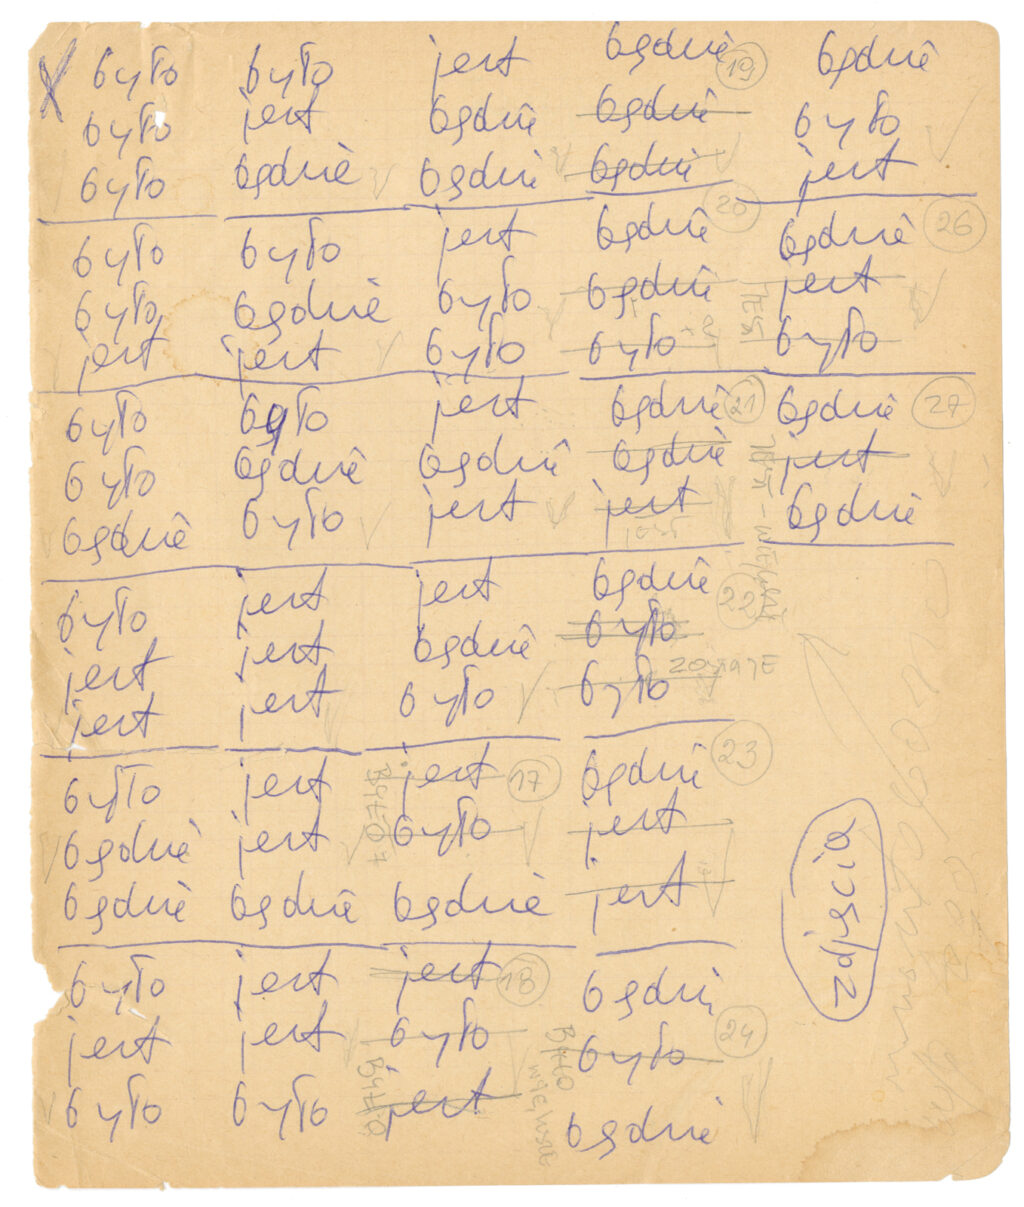 X było było jest będzie 19 będzie
było jest będzie będzie było
było będzie będzie będzie jest
było było jest będzie 20 będzie 26
było będzie było będzie jest
jest jest było było było
było było jest będzie 21 będzie 27
było będzie będzie będzie jest
będzie było jest jest będzie
było jest jest będzie 22
jest jest będzie było
jest jest było było
było jest jest 17 będzie 23
będzie jest było jest
będzie będzie będzie jest
było jest jest 18 będzie
jest jest było było 24
było było jest będzie
JEST
BYŁO
BYŁO
zdjęcia